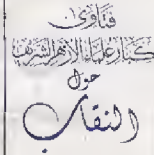 فتاوى
كبار علماء الأزهر الشريف
حول
النقاب